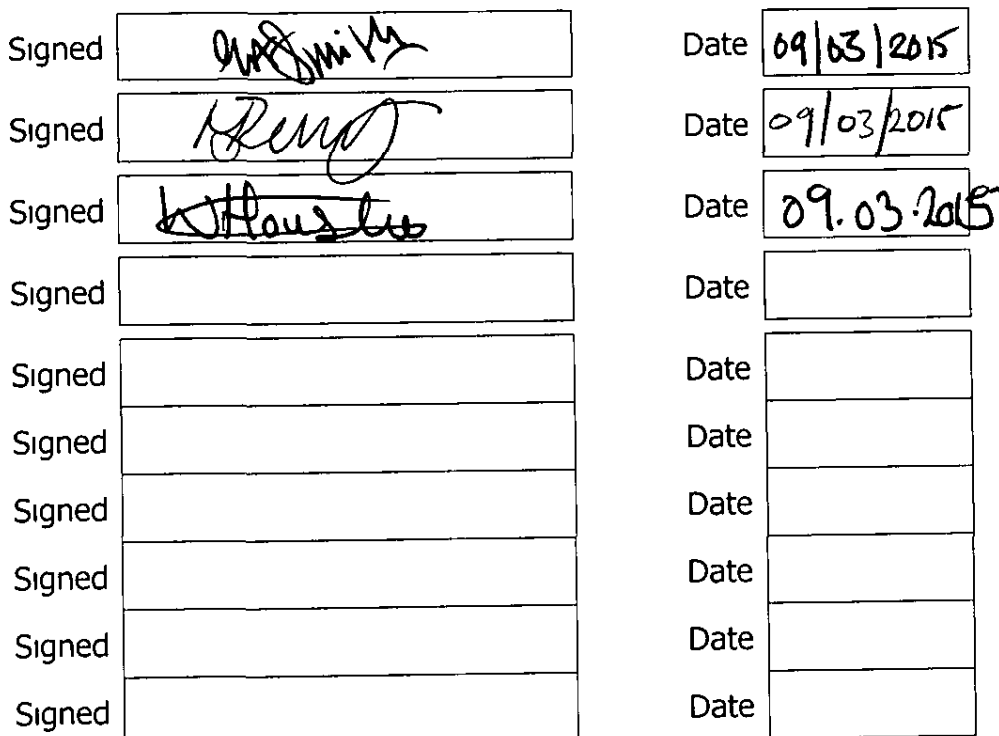 Signed Smith Date 09/03/2015
Signed Date 09/03/2015
Signed Date 09.03.2015
Signed Date
Signed Date
Signed Date
Signed Date
Signed Date
Signed Date
Signed Date